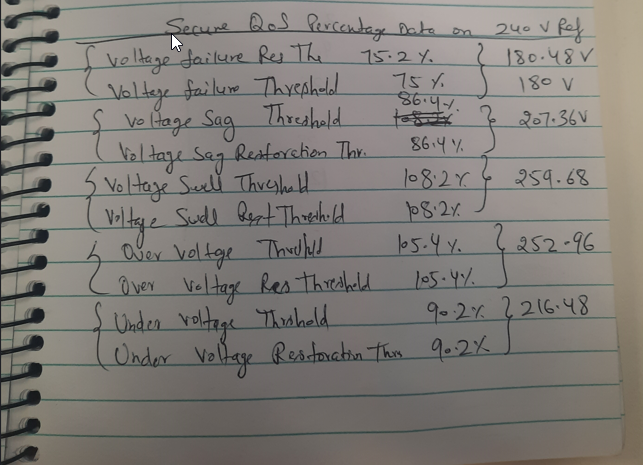 Secure QoS Percentage Data on 240 V Ref
Voltage failure Res Thr 75.2 % 180.48 V
Voltage failure Threshold 75 % 180 V
Voltage Sag Threshold 86.4 % 207.36V
Voltage Sag Restoration Thr. 86.4 %
Voltage Swell Threshold 108.2 % 259.68
Voltage Swell Rest Threshold 108.2 %
Over Voltage Threshold 105.4 % 252.96
Over Voltage Res Threshold 105.4 %
Under Voltage Threshold 90.2 % 216.48
Under Voltage Restoration Thr 90.2 %